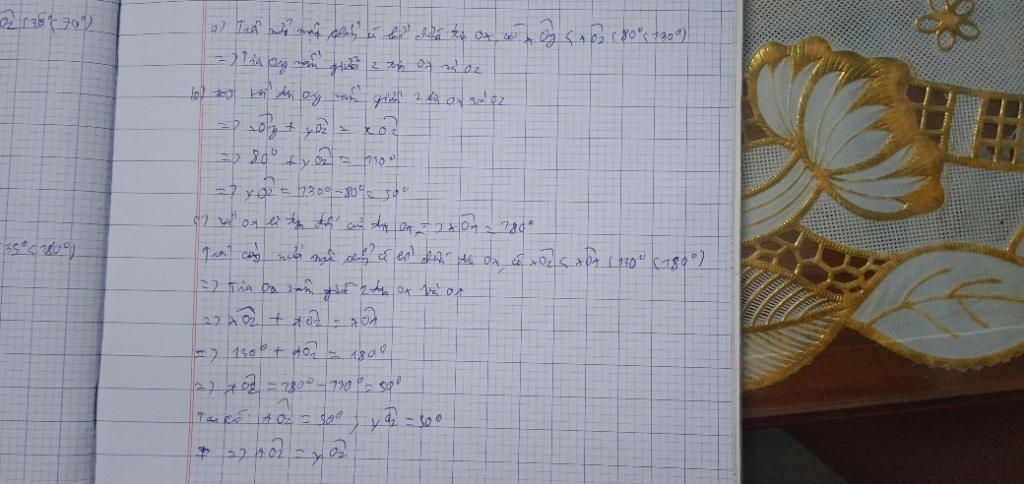 Oz (35° < 70°)
a) Trên nửa mặt phẳng có bờ chứa tia Ox, có xOy < xOz (80° < 130°)
=> Tia Oy nằm giữa 2 tia Ox và Oz
b) Vì tia Oy nằm giữa 2 tia Ox và Oz
=> xOy + yOz = xOz
=> 80° + yOz = 130°
=> yOz = 130° - 80° = 50°
tia Ox => xOt = 180°
35° < 180°)
Trên cùng nửa mặt phẳng có bờ chứa tia Ox, có xOz < xOt (130° < 180°)
=> Tia Oz nằm giữa 2 tia Ox và Ot
=> xOz + tOz = xOt
=> 130° + tOz = 180°
=> tOz = 180° - 130° = 50°
tOz = 50° ; yOz = 50°
=> tOz = yOz